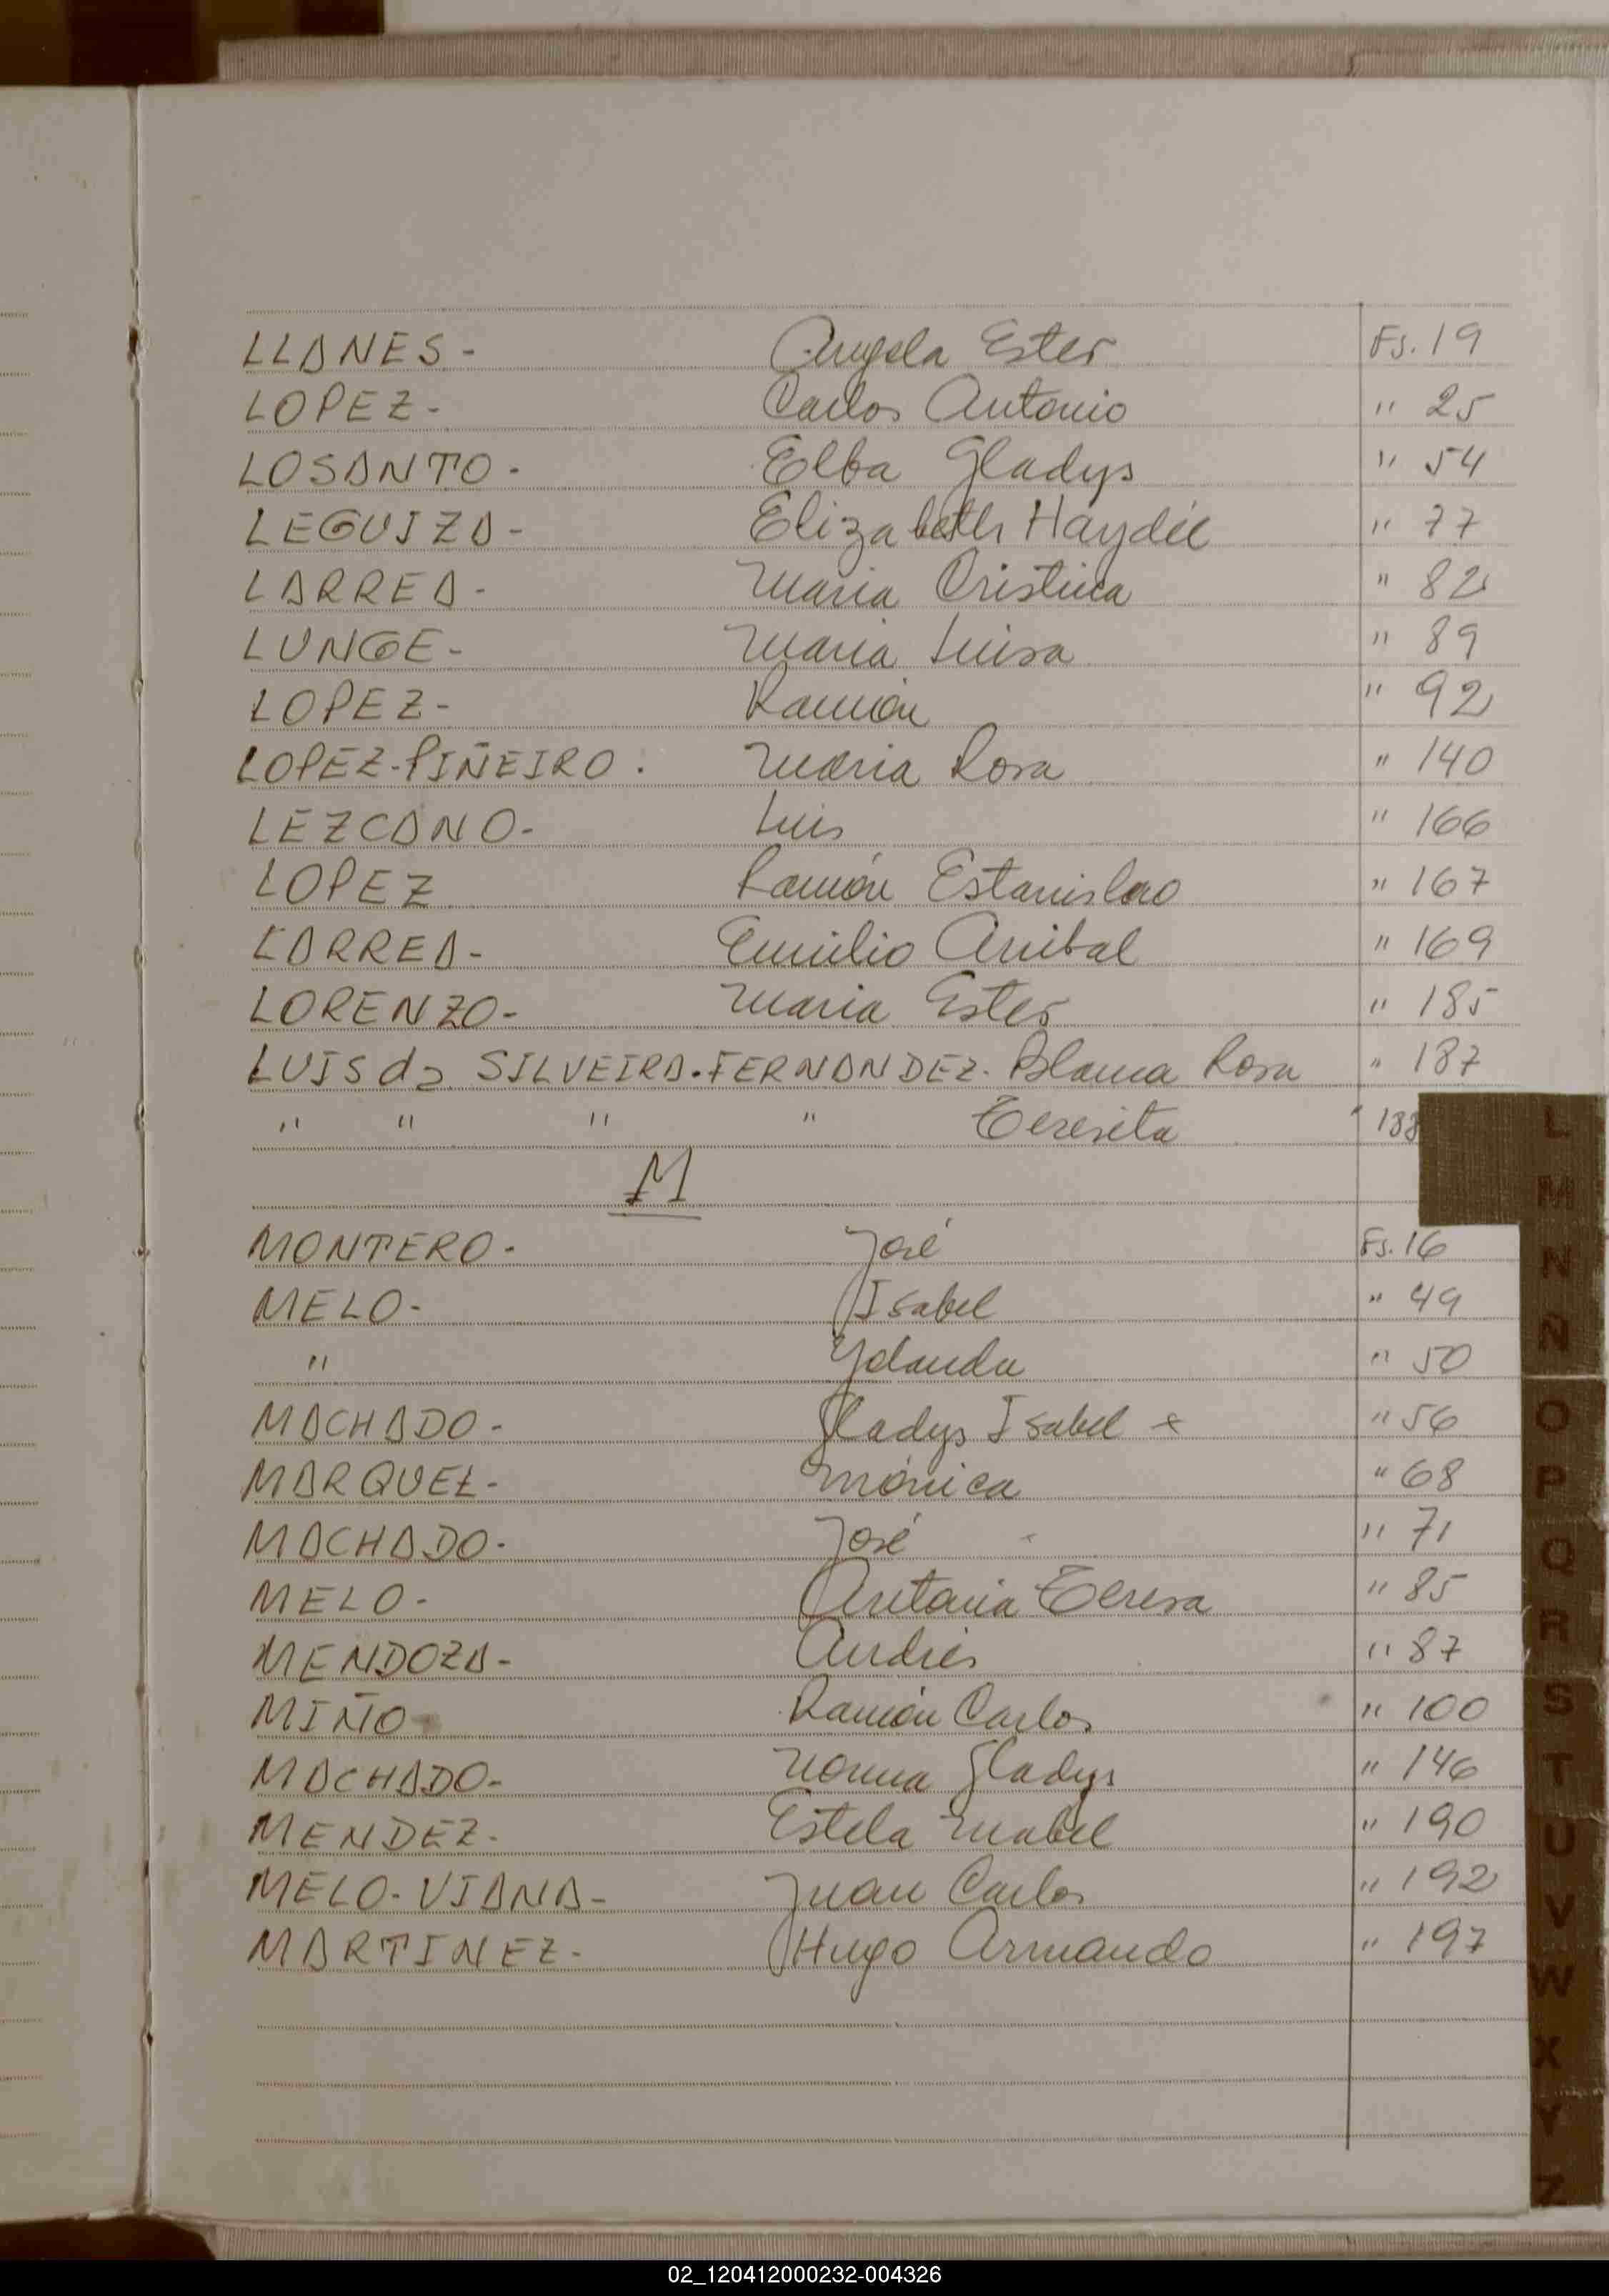 LLANES - Angela Ester Fs. 19
LOPEZ - Carlos Antonio " 25
LOSANTO - Elba Gladys " 54
LEGUIZA - Elizabeth Haydée " 77
LARREA - Maria Cristina " 82
LUNGE - Maria Luisa " 89
LOPEZ - Ramón " 92
LOPEZ-PIÑEIRO . Maria Rosa " 140
LEZCANO - Luis " 166
LOPEZ Ramón Estanislao " 167
LARREA - Emilio Anibal " 169
LORENZO - Maria Ester " 185
LUIS da SILVEIRA-FERNANDEZ - Blanca Rosa " 187
" " " " Teresita " 188
M
MONTERO - José Fs. 16
MELO - Isabel " 49
" Yolanda " 50
MACHADO - Gladys Isabel x " 56
MARQUEZ - Mónica " 68
MACHADO - José " 71
MELO - Antonia Teresa " 85
MENDOZA - Andrés " 87
MIÑO Ramón Carlos " 100
MACHADO - Norma Gladys " 146
MENDEZ - Estela Mabel " 190
MELO-VIANA - Juan Carlos " 192
MARTINEZ - Hugo Armando " 197
L
M
N
Ñ
O
P
Q
R
S
T
U
V
W
X
Y
Z
02_120412000232-004326